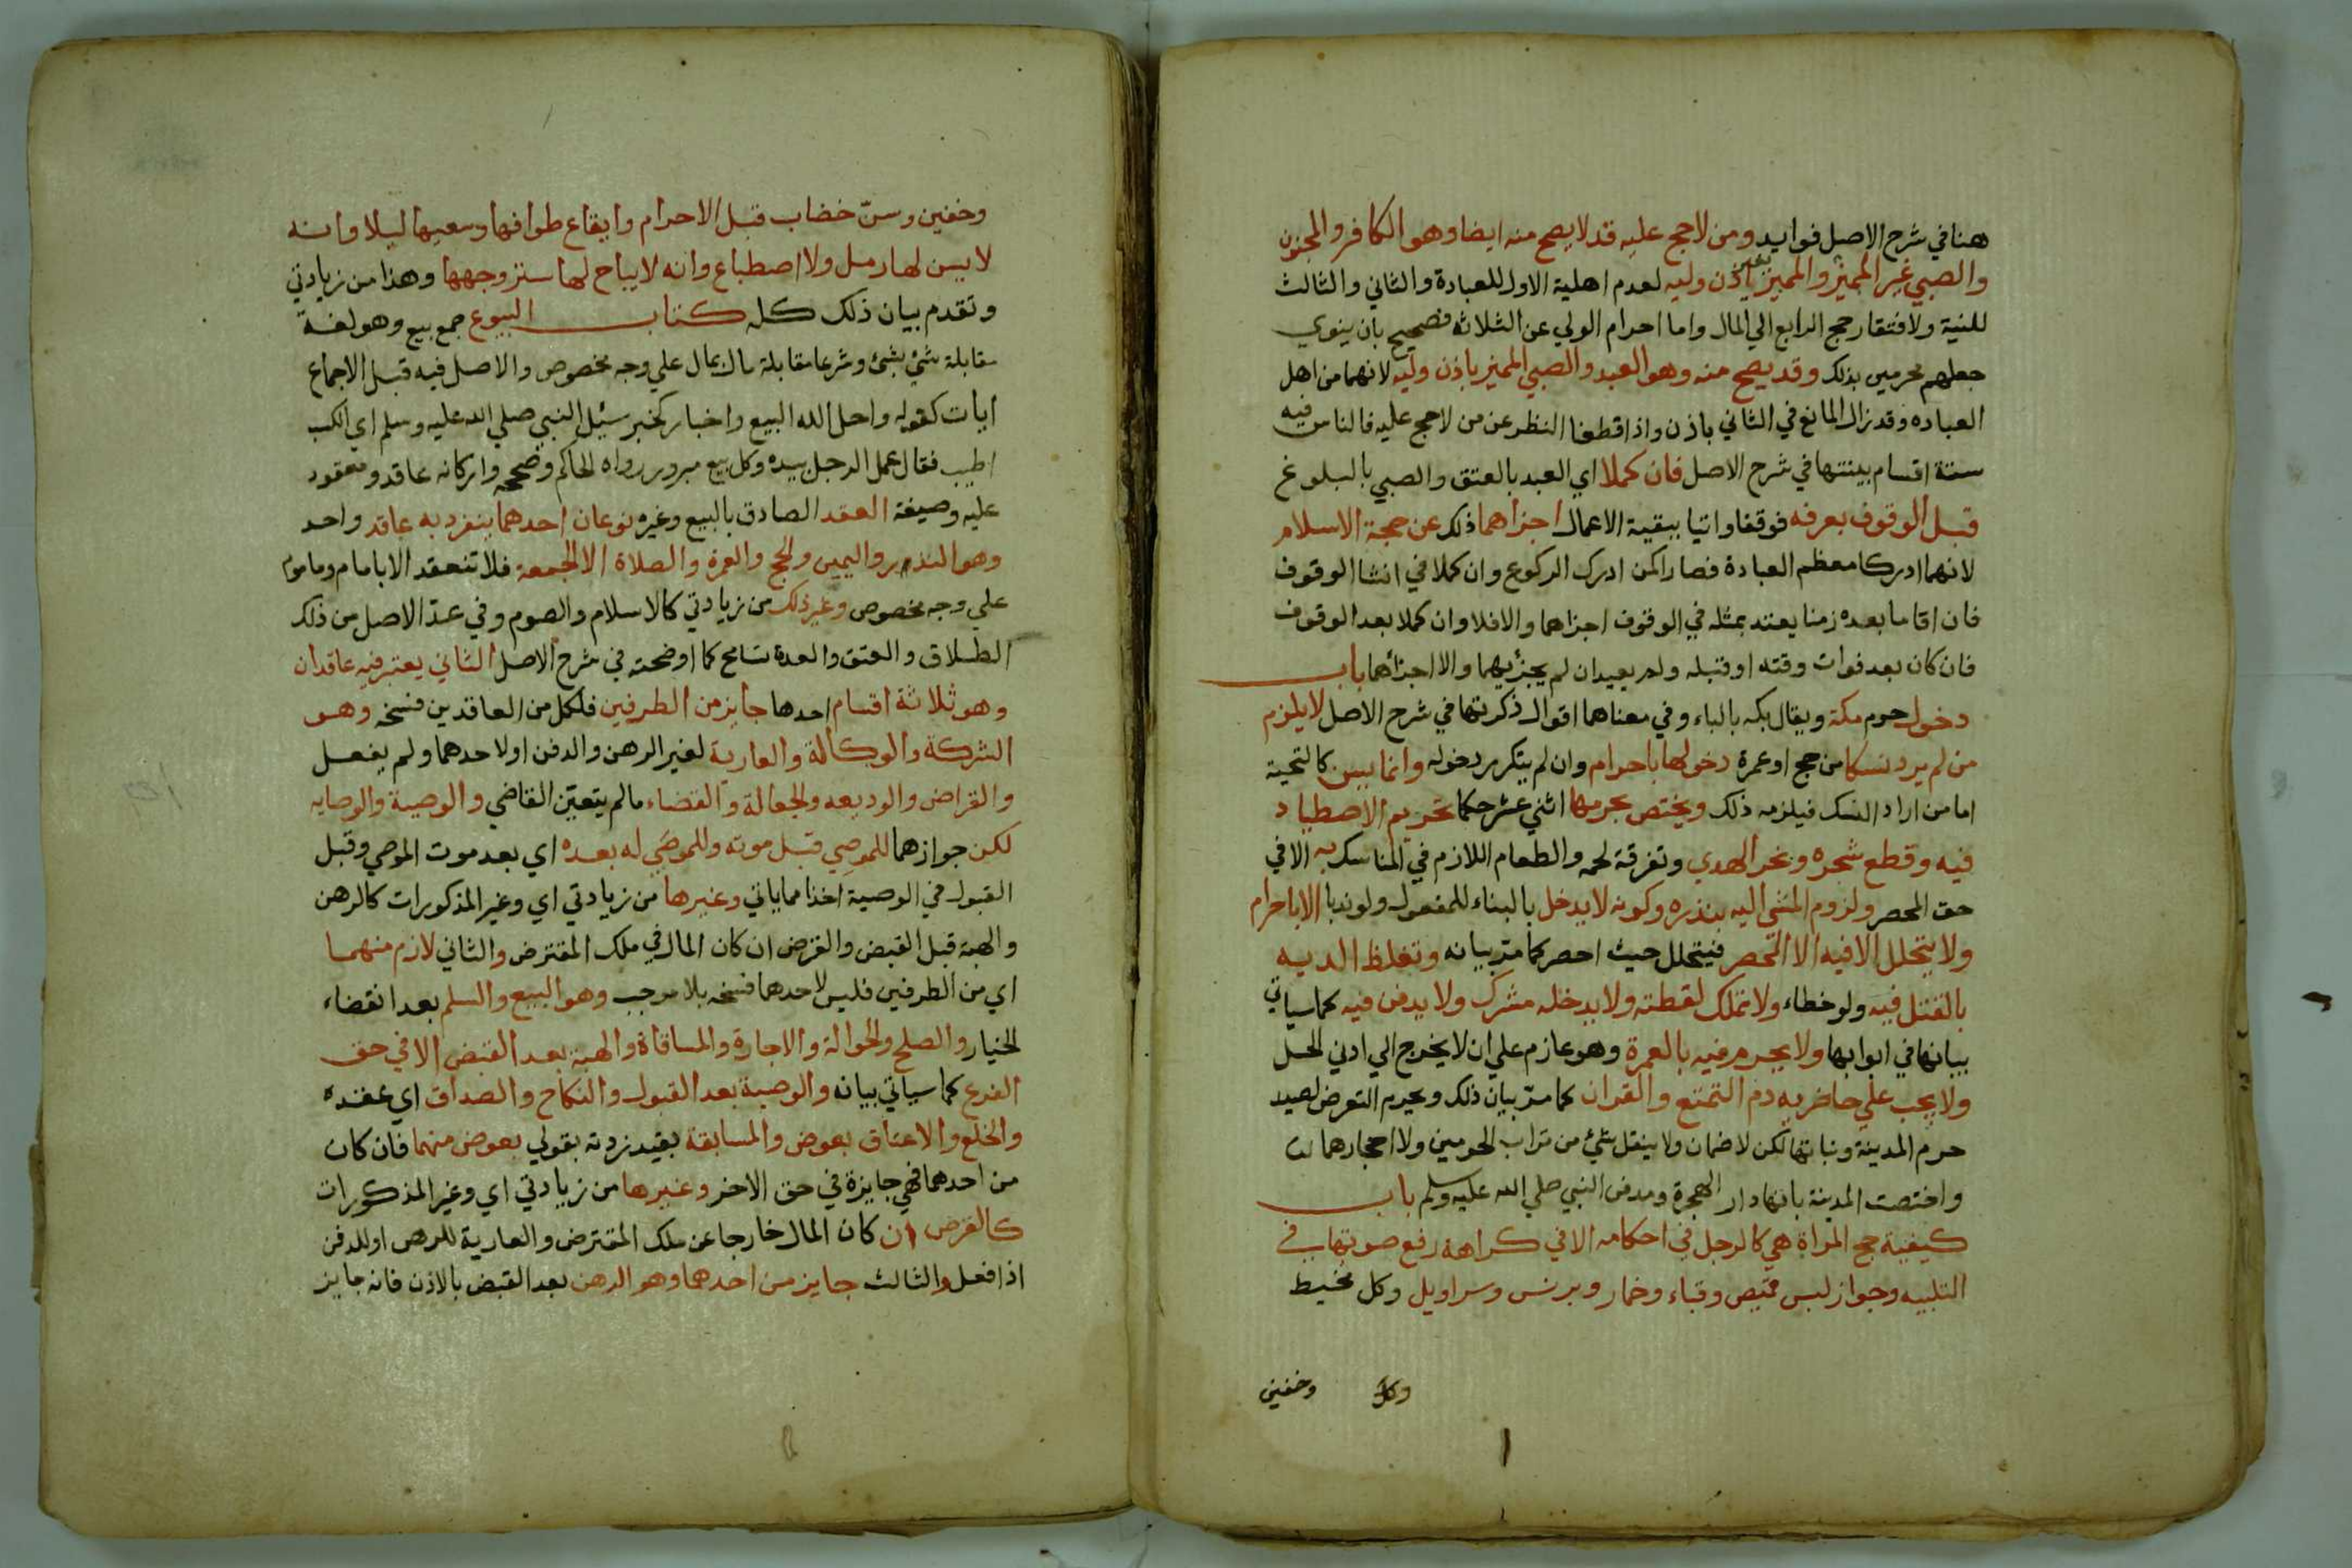 هنا في شرح الاصل فوايد ومن لا حج عليه قد لا يصح منه ايضا وهو الكافر والمجنون
والصبي غير المميز والمميز بغير اذن وليه لعدم اهلية الاول للعبادة والثاني والثالث
للنية ولافتقار حج الرابع الي المال واما احرام الولي عن الثلاثه فصحيح بان ينوي
جعلهم محرمين بذلك وقد يصح منه وهو العبد والصبي المميز باذن وليه لانهما من اهل
العباده وقد زال المانع في الثاني باذن واذا قطعنا النظر عن من لا حج عليه فالناس فيه
ستة اقسام بينتها في شرح الاصل فان كملا اي العبد بالعتق والصبي بالبلوغ
قبل الوقوف بعرفه فوقفا واتيا ببقية الاعمال اجزاهما ذلك عن حجة الاسلام
لانهما ادركا معظم العبادة فصارا كمن ادرك الركوع وان كملا في انشا الوقوف
فان اقاما بعده زمنا يعتد بمثله في الوقوف اجزاهما والا فلا وان كملا بعد الوقوف
فان كان بعد فوات وقته او قبله ولم يعيدا ن لم يجزيهما والا اجزاهما باب
دخول حرم مكة ويقال بكه بالباء وفي معناهما اقوال ذكرتها في شرح الاصل لا يلزم
من لم يرد نسكا من حج او عمرة دخولها باحرام وان لم يتكرر دخوله وانما يسن كالتحية
اما من اراد النسك فيلزمه ذلك ويختص بحرمها اثني عشر حكما تحريم الاصطياد
فيه وقطع شجره ونحر الهدي وتفرقة لحمه والطعام اللازم في المناسك به الا في
حق المحصر ولزوم المشي اليه بنذره وكونه لا يدخل بالبناء للمفعول ولو ندبا الا باحرام
ولا يتحلل الا فيه الا المحصر فيتحلل حيث احصر كما مر بيانه وتغلظ الديه
بالقتل فيه ولو خطاء ولا تملك لقطته ولا يدخله مشرك ولا يدفن فيه كما سياتي
بيانها في ابوابها ولا يحرم فيه بالعمرة وهو عازم علي ان لا يخرج الي ادني الحل
ولا يجب علي حاضريه دم التمتع والقران كما مر بيان ذلك ويحرم التعرض لصيد
حرم المدينة ونباتها لكن لا ضمان ولا ينقل شئ من تراب الحرمين ولا احجارهما
واختصت المدينة بانها دار الهجرة ومدفن النبي صلي الله عليه وسلم باب
كيفية حج المراة هي كالرجل في احكامه الا في كراهة رفع صوتها في
التلبيه وجواز لبس قميص وقباء وخمار وبرنس وسراويل وكل مخيط
وكل وخفين
وخفين وسن خضاب قبل الاحرام وايقاع طوافها وسعيها ليلا وانه
لا يسن لها رمل ولا اصطباع وانه لا يباح لها ستر وجهها وهذا من زيادتي
وتقدم بيان ذلك كله كتاب البيوع جمع بيع وهو لغة
مقابلة شئ بشئ وشرعا مقابلة مال بمال علي وجه مخصوص والاصل فيه قبل الاجماع
ايات كقوله واحل الله البيع واخبار كخبر سئل النبي صلي الله عليه وسلم اي الكسب
اطيب فقال عمل الرجل بيده وكل بيع مبرور رواه الحاكم وصححه واركانه عاقد ومعقود
عليه وصيغة العقد الصادق بالبيع وغيره نوعان احدهما ينفرد به عاقد واحد
وهو النذر واليمين والحج والعمرة والصلاة الا الجمعة فلا تنعقد الا بامام وماموم
علي وجه مخصوص وغير ذلك من زيادتي كالاسلام والصوم وفي عد الاصل من ذلك
الطلاق والعتق والعدة تسامح كما اوضحته في شرح الاصل الثاني يعتبر فيه عاقدان
وهو ثلاثة اقسام احدها جايز من الطرفين فلكل من العاقدين فسخه وهو
الشركة والوكالة والعارية لغير الرهن والدفن او لاحدهما ولم يفعل
والقراض والوديعه والجعالة والقضاء ما لم يتعين القاضي والوصية والوصايه
لكن جوازهما للموصي قبل موته وللموصي له بعده اي بعد موت الموصي وقبل
القبول في الوصية اخذا مما ياتي وغيرها من زيادتي اي وغير المذكورات كالرهن
والهبة قبل القبض والقرض ان كان المال في ملك المقترض والثاني لازم منهما
اي من الطرفين فليس لاحدهما فسخه بلا موجب وهو البيع والسلم بعد انقضاء
الخيار والصلح والحوالة والاجارة والمساقاة والهبة بعد القبض الا في حق
الفرع كما سياتي بيانه والوصية بعد القبول والنكاح والصداق اي عقده
والخلع والاعتاق بعوض والمسابقة بقيد زدته بقولي بعوض منهما فان كان
من احدهما فهي جايزة في حق الاخر وغيرها من زيادتي اي وغير المذكورات
كالقرض ان كان المال خارجا عن ملك المقترض والعارية للرهن او للدفن
اذا فعل والثالث جايز من احدهما وهو الرهن بعد القبض بالاذن فانه جايز